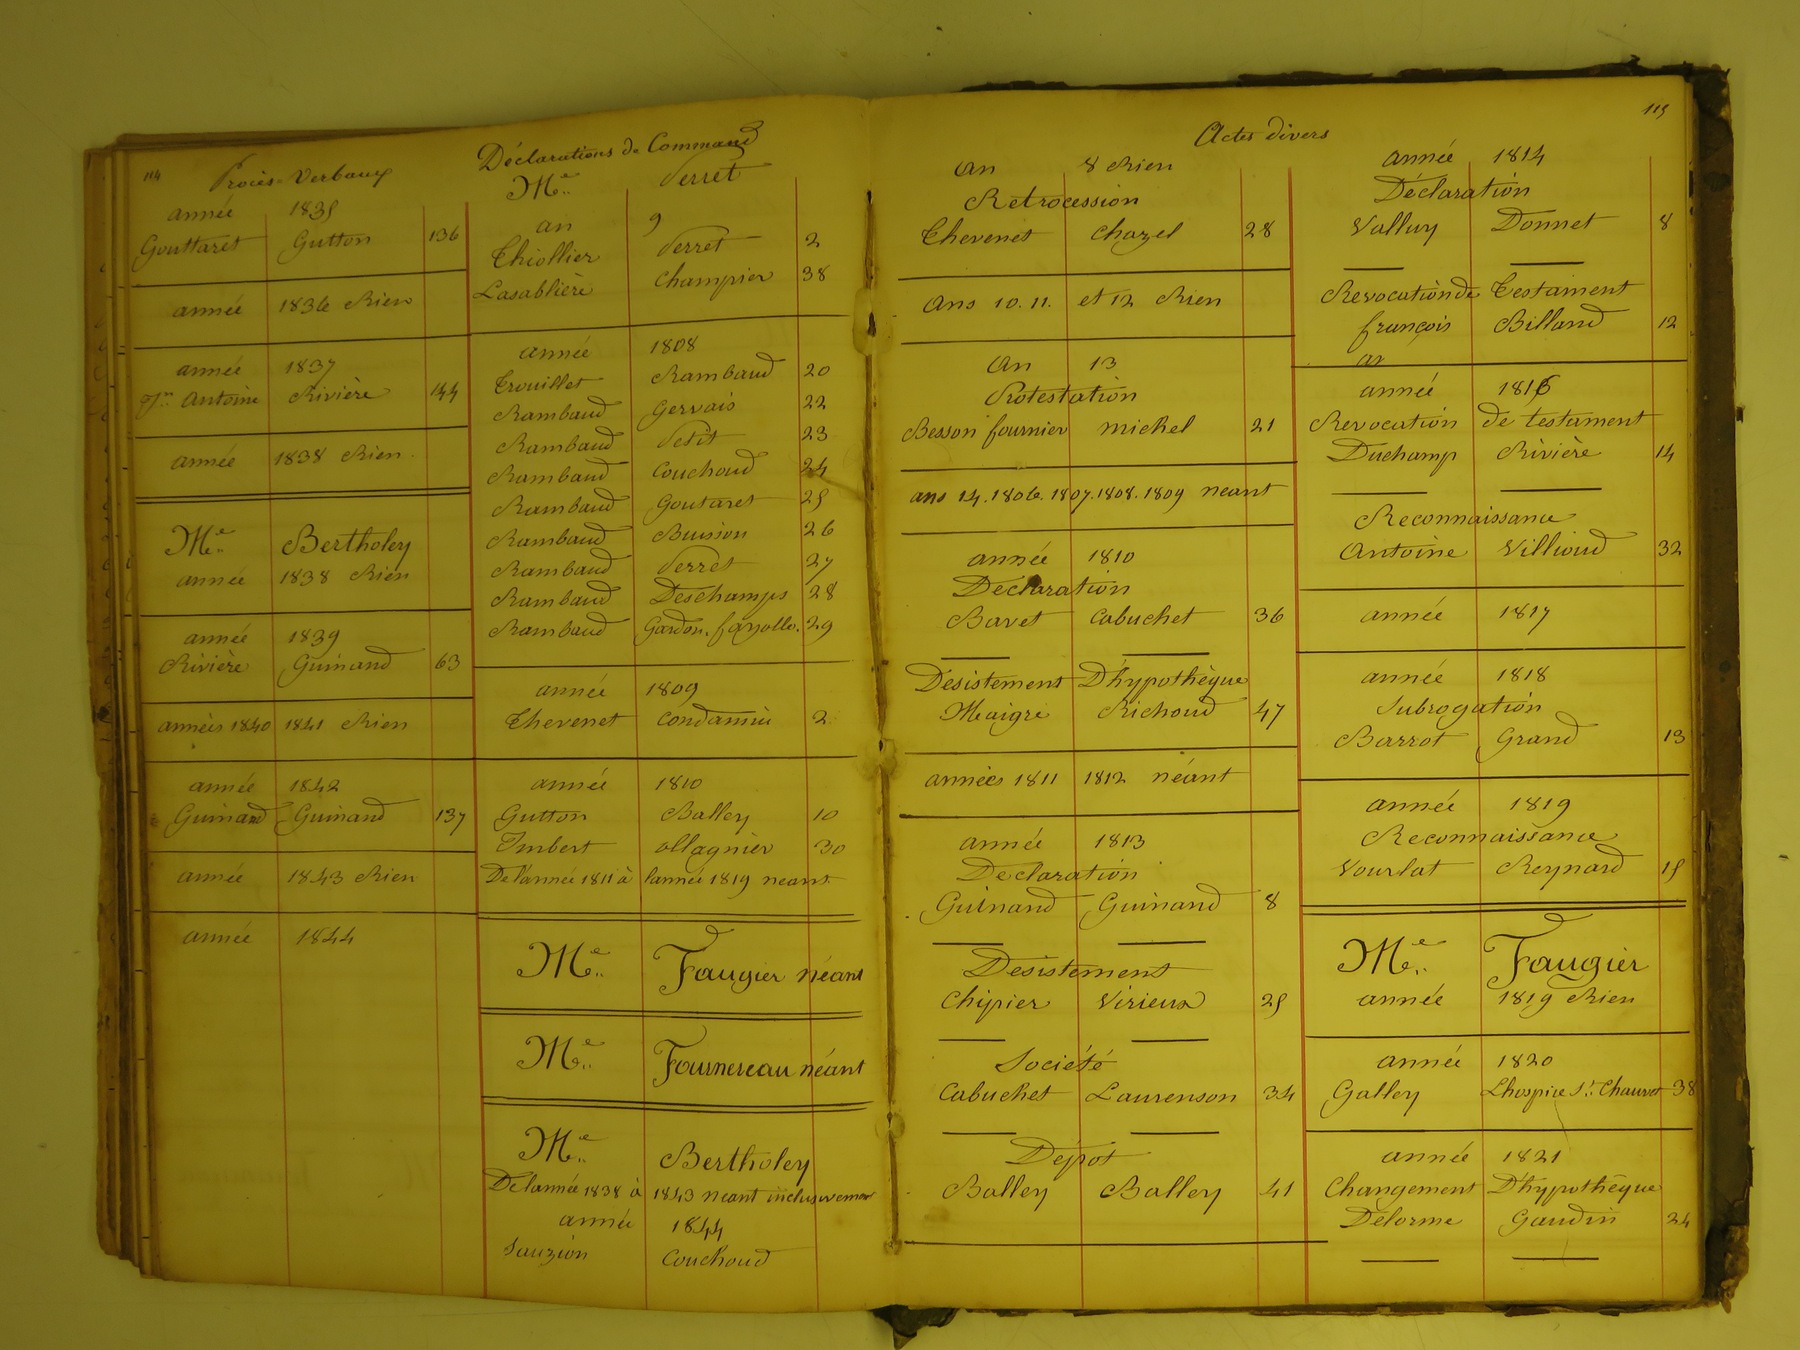 114
Procès-Verbaux
année 1835
Gouttaret Gutton 136
année 1836 Rien
année 1837
Jn. Antoine Rivière 144
année 1838 Rien.
Me. Bertholey
année 1838 Rien
année 1839
Rivière Guinand 63
années 1840 1841 Rien
année 1842
Guinand Guinand 137
année 1843 Rien
année 1844
Déclarations de Command
Me. Verret
an 9
Thiollier Verret 2
Lasablière Champier 38
année 1808
Trouillet Rambaud 20
Rambaud Gervais 22
Rambaud Petit 23
Rambaud Couchoud 24
Rambaud Goutaret 25
Rambaud Buisson 26
Rambaud Verret 27
Rambaud Deschamps 28
Rambaud Gardon. fayolle. 29
année 1809
Thevenet Condamin 2
année 1810
Gutton Balley 10
Imbert ollagnier 30
De l'année 1811 à l'année 1819 neant
Me. Faugier néant
Me. Fournereau néant
Me. Bertholey
De l'année 1838 à 1843 neant inclusivement
année 1844
Sauzion Couchoud
Actes divers
An 8 Rien
Retrocession
Thevenet Chazel 28
Ans 10. 11. et 12 Rien
An 13
Protestation
Besson fournier michel 21
ans 14. 1806. 1807. 1808. 1809 neant
année 1810
Déclaration
Bavet Cabuchet 36
Desistement D'hypothèque
Maigre Richoud 47
années 1811 1812 néant
année 1813
Declaration
Guinand Guinand 8
Desistement
Chipier Vérieux 25
Société
Cabuchet Laurenson 34
Dépot
Balley Balley 41
115
année 1814
Déclaration
Valluy Donnet 8
Revocation de Testament
françois Billand 12
an
année 1816
Revocation de testament
Duchamp Rivière 14
Reconnaissance
Antoine Villioud 32
année 1817
année 1818
Subrogation
Barrot Grand 13
année 1819
Reconnaissance
Vourlat Reynard 15
Me. Faugier
année 1819 Rien
année 1820
Galley Lhospice St. Chauvet 38
année 1821
Changement D'hypothèque
Delorme Gaudin 24